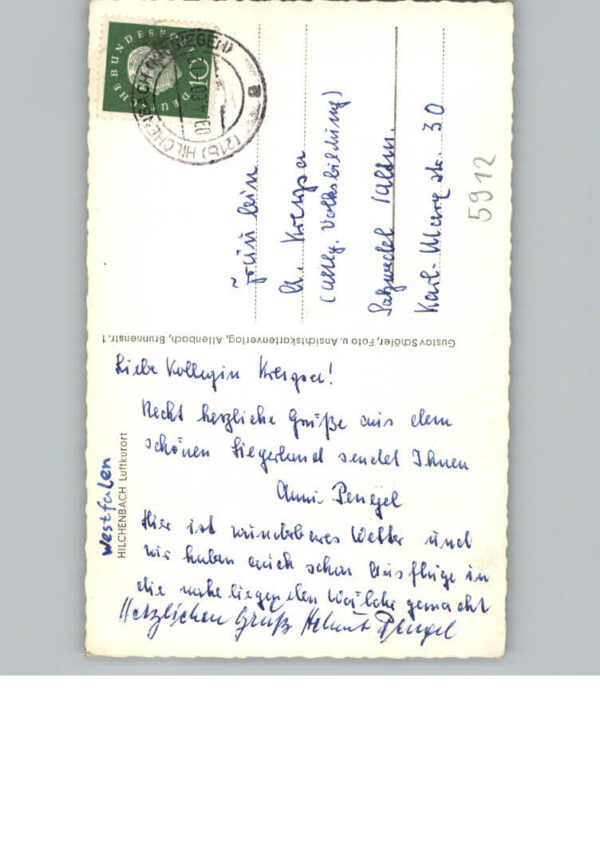 DEUTSCHE BUNDESPOST
10
(21b) HILCHENBACH (KR SIEGEN)
a
Fräulein
A. Krespa
(Allg. Volksbildung)
Salzwedel
Karl-Marx-Str. 30
5912
Gustav Schöler, Foto u. Ansichtskartenverlag, Allenbach, Brunnenstr. 1
Westfalen
HILCHENBACH Luftkurort
Liebe Kollegin Krespa!
Recht herzliche Grüße aus dem
schönen Siegerland sendet Ihnen
Anni Pengel
Hier ist wunderbares Wetter und
wir haben auch schon Ausflüge in
die naheliegenden Wälder gemacht
Herzlichen Gruß Helmut Pengel